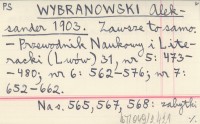 PS
WYBRANOWSKI Alek-
sander 1903. Zawsze to samo.
- Przewodnik Naukowy i Lite-
racki (Lwów) 31, nr 5: 473-
-480; nr 6: 562-576; nr 7:
652-662.
Nas. 565, 567, 568: zabytki